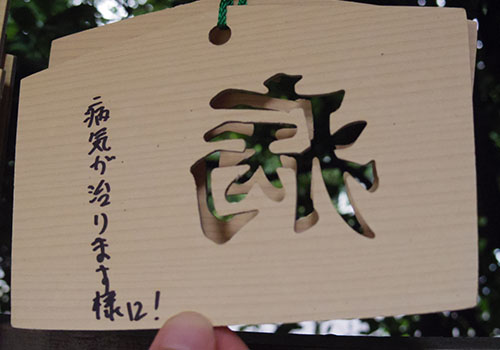 病気が治ります様に!